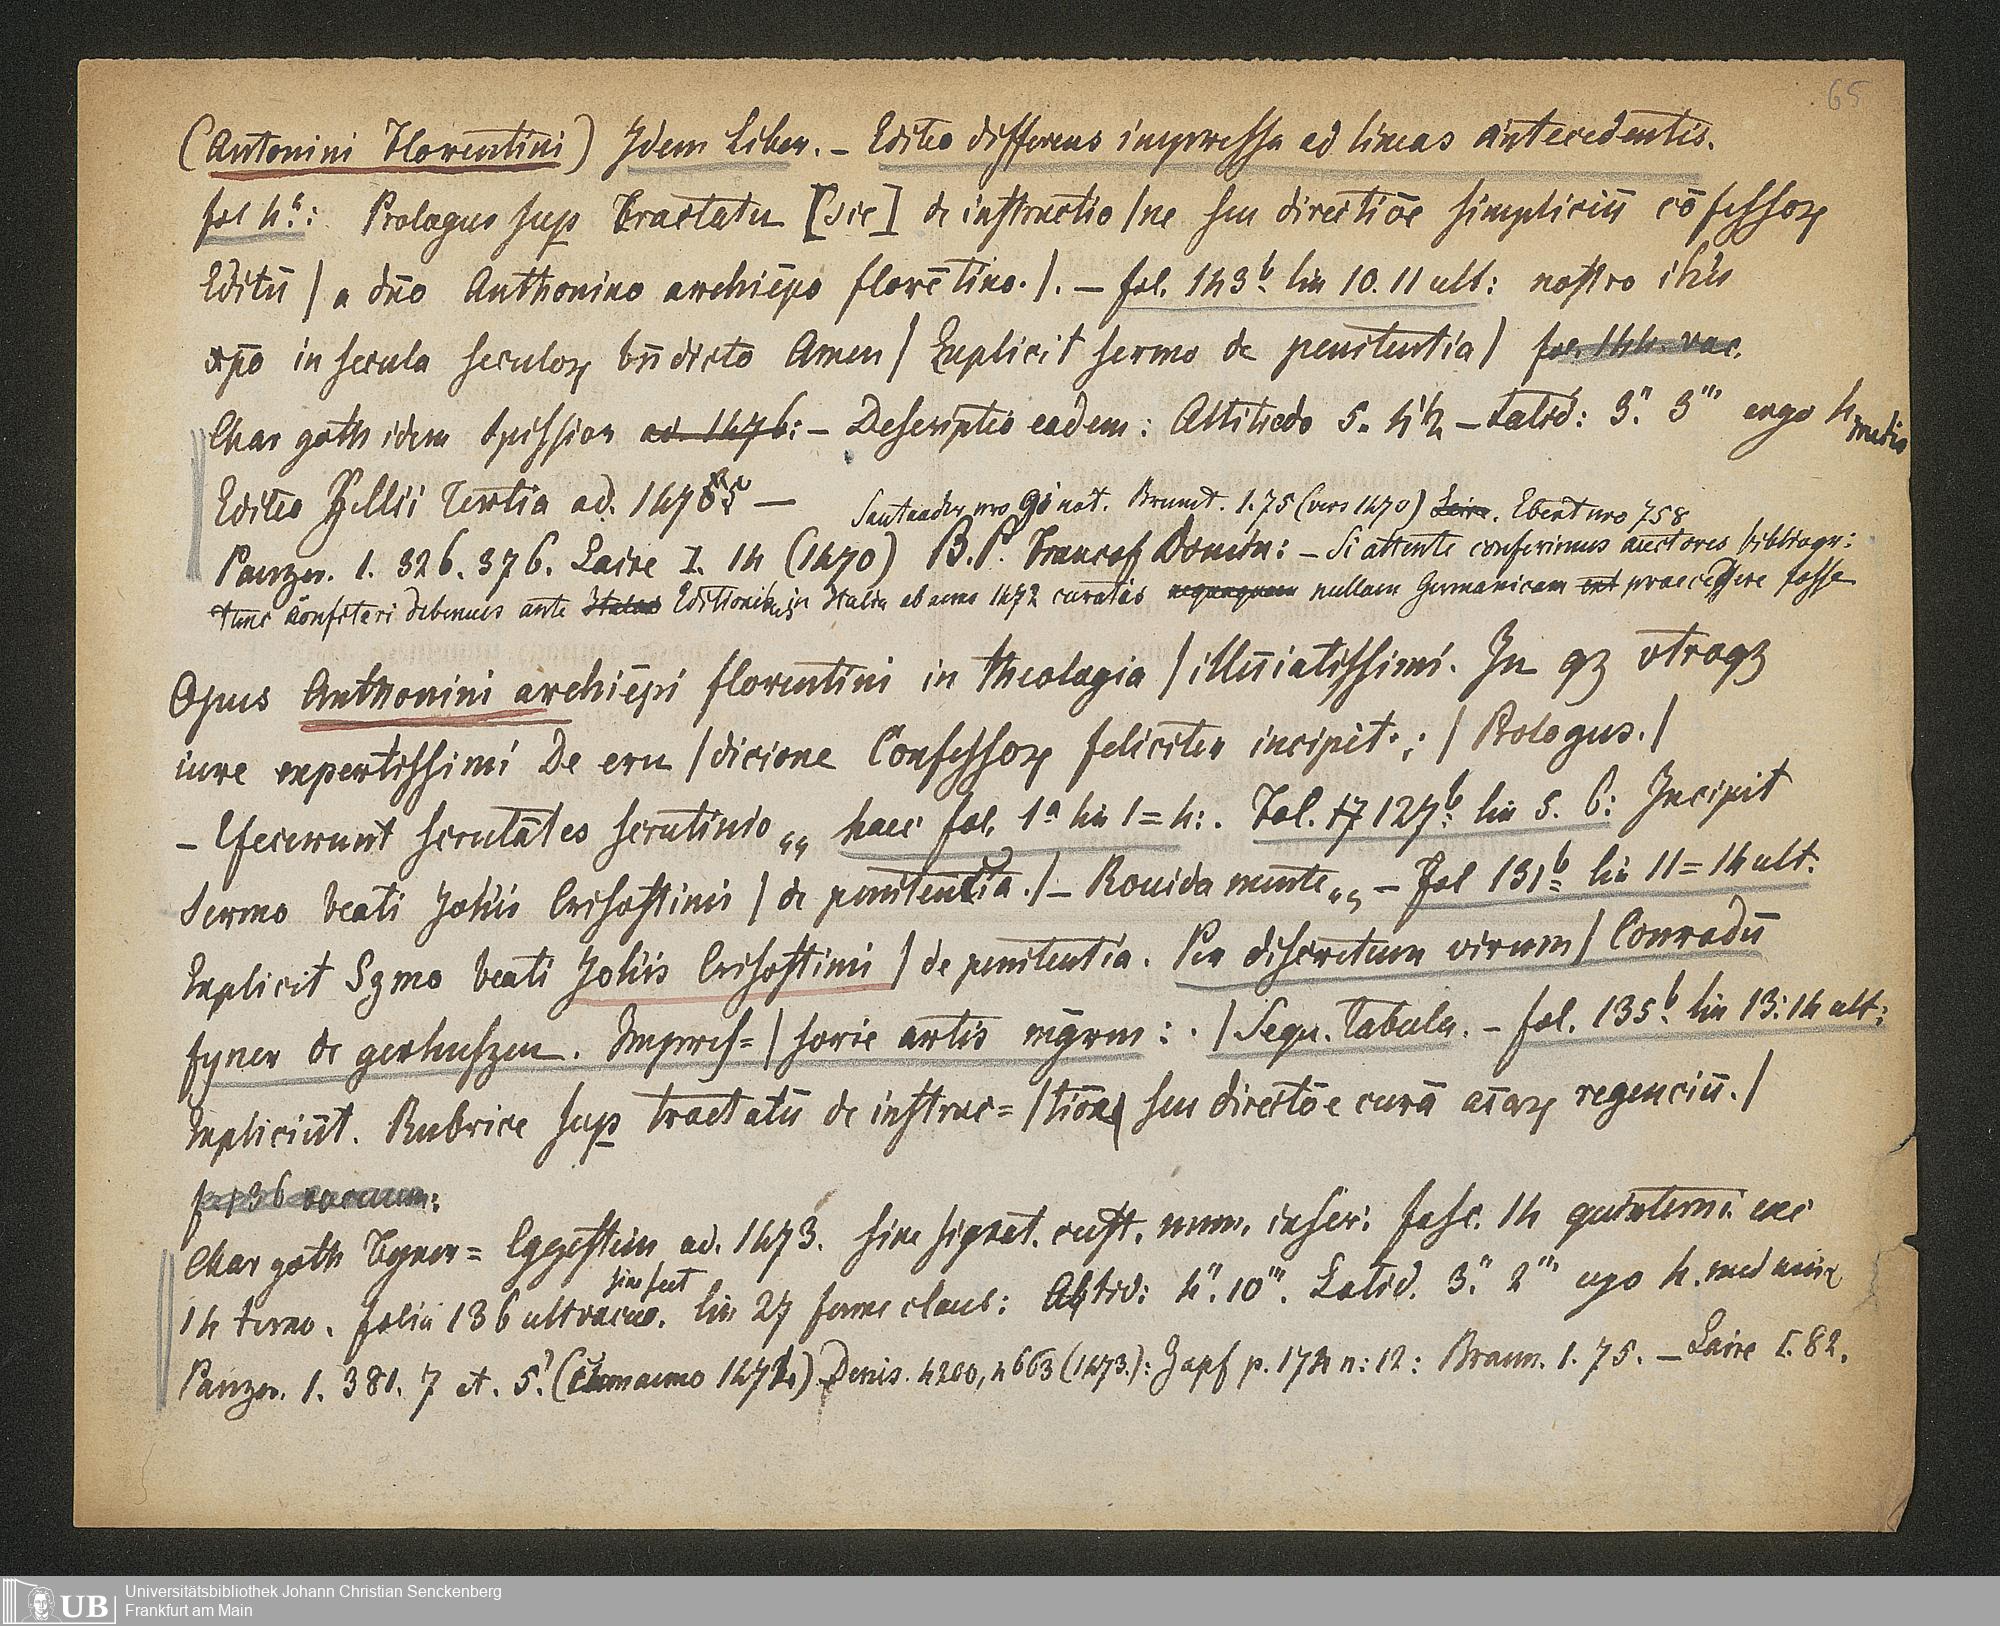 65
(Antonini Florentini) Idem Liber. – Editio differens impressa ad lineas antecedentis.
fol 4ª: Prologus sup Tractatu [sic] de instructio / ne seu directiōe simpliciū cōfessoꝝ
Editū / a dn̄o Anthonino archiēpo florētino. /. – fol. 143ᵇ lin 10. 11 ult: nostro ih̄u
xp̄o in secula seculoꝝ bn̄dicto Amen / Explicit sermo de penitentia / fol. 144. vac.
Char goth idem spissior ad. 1476: – Descriptio eadem: Altitudo 5. – Latid: 3." 3"' ergo 4 medio
Editio Zellii Tertia ad. –
Santander nro nat. Brunet. 1. 75 (vers 1470) Laire. Ebert nro 758
Panzer. 1. 326. 376. Laire I. 14 (1470) B. P. Francof Domin: – Si attente conferimus auctores bibliogr:
tunc confiteri debemus ante Editionibus in Italia ab anno 1472 curatas nequaquam nullam Germanicam praecessisse posse
Opus Anthonini archiēpi florentini in theologia / illun̄iatissimi. In qꝫ vtroqꝫ
iure expertissimi De eru / dicione Confessoꝝ feliciter incipit. ; / Rologus. /
– Efecerunt scrutātes scrutinio „ haec fol. 1ª lin 1 = 4: . Fol. 127ᵇ: lin 5. 6: Incipit
Sermo beati Joh̄is Crisostimi / de penitentia. / – Rouida mente „ – Fol 131ᵇ lin 11 = 14 ult:
Explicit Sermo beati Joh̄is Crisostimi / de penitentia. Per discretum virum / Conradū
fyner de gerhuszen. Impres= / sorie artis mḡrm : . / Sequ. Tabula. – fol. 135ᵇ: lin 13: 14 ult:
Expliciūt. Rubrice sup tractatū de instruc= / tiōe seu directōe curā aīaꝝ regenciū. /
f 136 vacuum:
Char goth Fyner= Eggestein ad. 1473. sine signat. cust. num. inser: fasc. 14 quinterni. exc
14 terno. folia 136 ult vacuo. sin sect lin 27 forme claus: Altid: 4". 10"'. Latid. 3." 2"' ergo 4. med
Panzer. 1. 381. 7 et. 5. Denis. 4200, 4663 (1473.): Zapf p. 174 n: 12: Braun. 1. 75. – Laire I. 82.
UB
Universitätsbibliothek Johann Christian Senckenberg
Frankfurt am Main